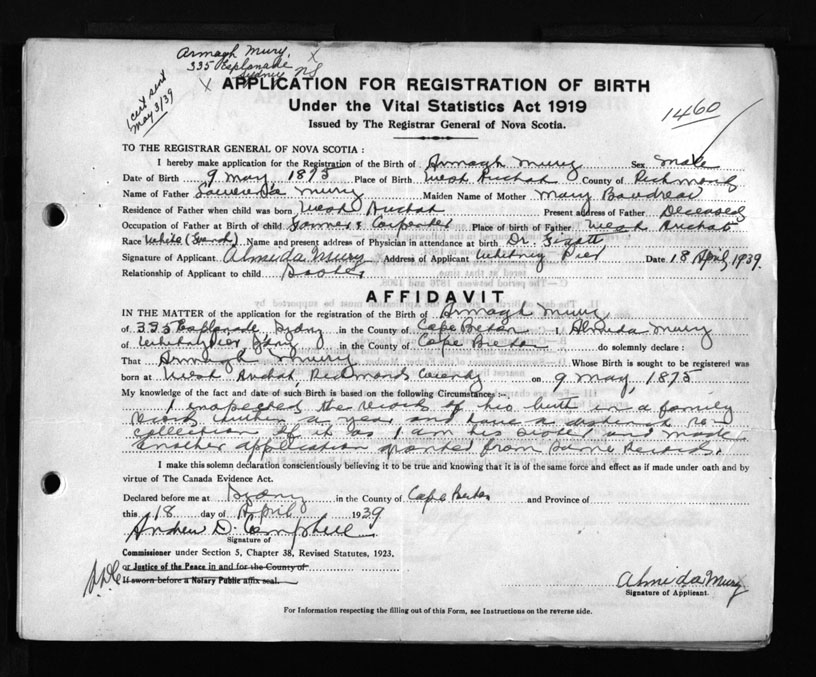 Armagh Mury. X
335 Esplanade
X Sydney NS
cert sent
May 3/39
APPLICATION FOR REGISTRATION OF BIRTH
Under the Vital Statistics Act 1919
Issued by The Registrar General of Nova Scotia.
1460
TO THE REGISTRAR GENERAL OF NOVA SCOTIA :
I hereby make application for the Registration of the Birth of Armagh Mury Sex Male
Date of Birth 9 May 1875 Place of Birth West Arichat County of Richmond
Name of Father Mury Maiden Name of Mother Mary Boudreau
Residence of Father when child was born West Arichat Present address of Father Deceased
Occupation of Father at Birth of child Farmer & Carpenter Place of birth of Father West Arichat
Race White (French) Name and present address of Physician in attendance at birth Dr.
Signature of Applicant Almeida Mury Address of Applicant Whitney Pier Date 18 April 1939.
Relationship of Applicant to child
AFFIDAVIT
IN THE MATTER of the application for the registration of the Birth of Armagh Mury
of 335 Esplanade, Sydney in the County of Cape Breton I, Almeida Mury
of Whitney Pier Sydney in the County of Cape Breton do solemnly declare :
That Armagh Mury Whose Birth is sought to be registered was
born at West Arichat, Richmond County on 9 May, 1875
My knowledge of the fact and date of such Birth is based on the following Circumstances :—
I inspected the record of his birth in a family
record within a year and have a distinct re-
collection of it as I am his and made
another application from same record.
I make this solemn declaration conscientiously believing it to be true and knowing that it is of the same force and effect as if made under oath and by
virtue of The Canada Evidence Act.
Declared before me at Sydney in the County of Cape Breton and Province of
this 18 day of April 1939
Andrew D. Campbell
Signature of
Commissioner under Section 5, Chapter 38, Revised Statutes, 1923.
or Justice of the Peace in and for the County of
If sworn before a Notary Public affix seal.
A.D.C.
Almeida Mury
Signature of Applicant.
For Information respecting the filling out of this Form, see Instructions on the reverse side.